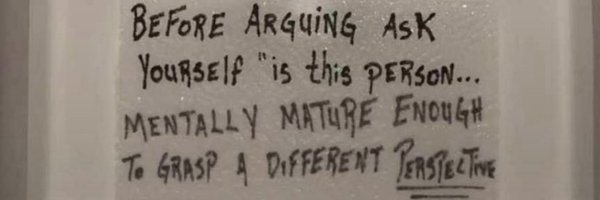 BEFORE ARGUING ASK
YOURSELF "is this PERSON...
MENTALLY MATURE ENOUGH
To GRASP A DIFFERENT PERSPECTIVE